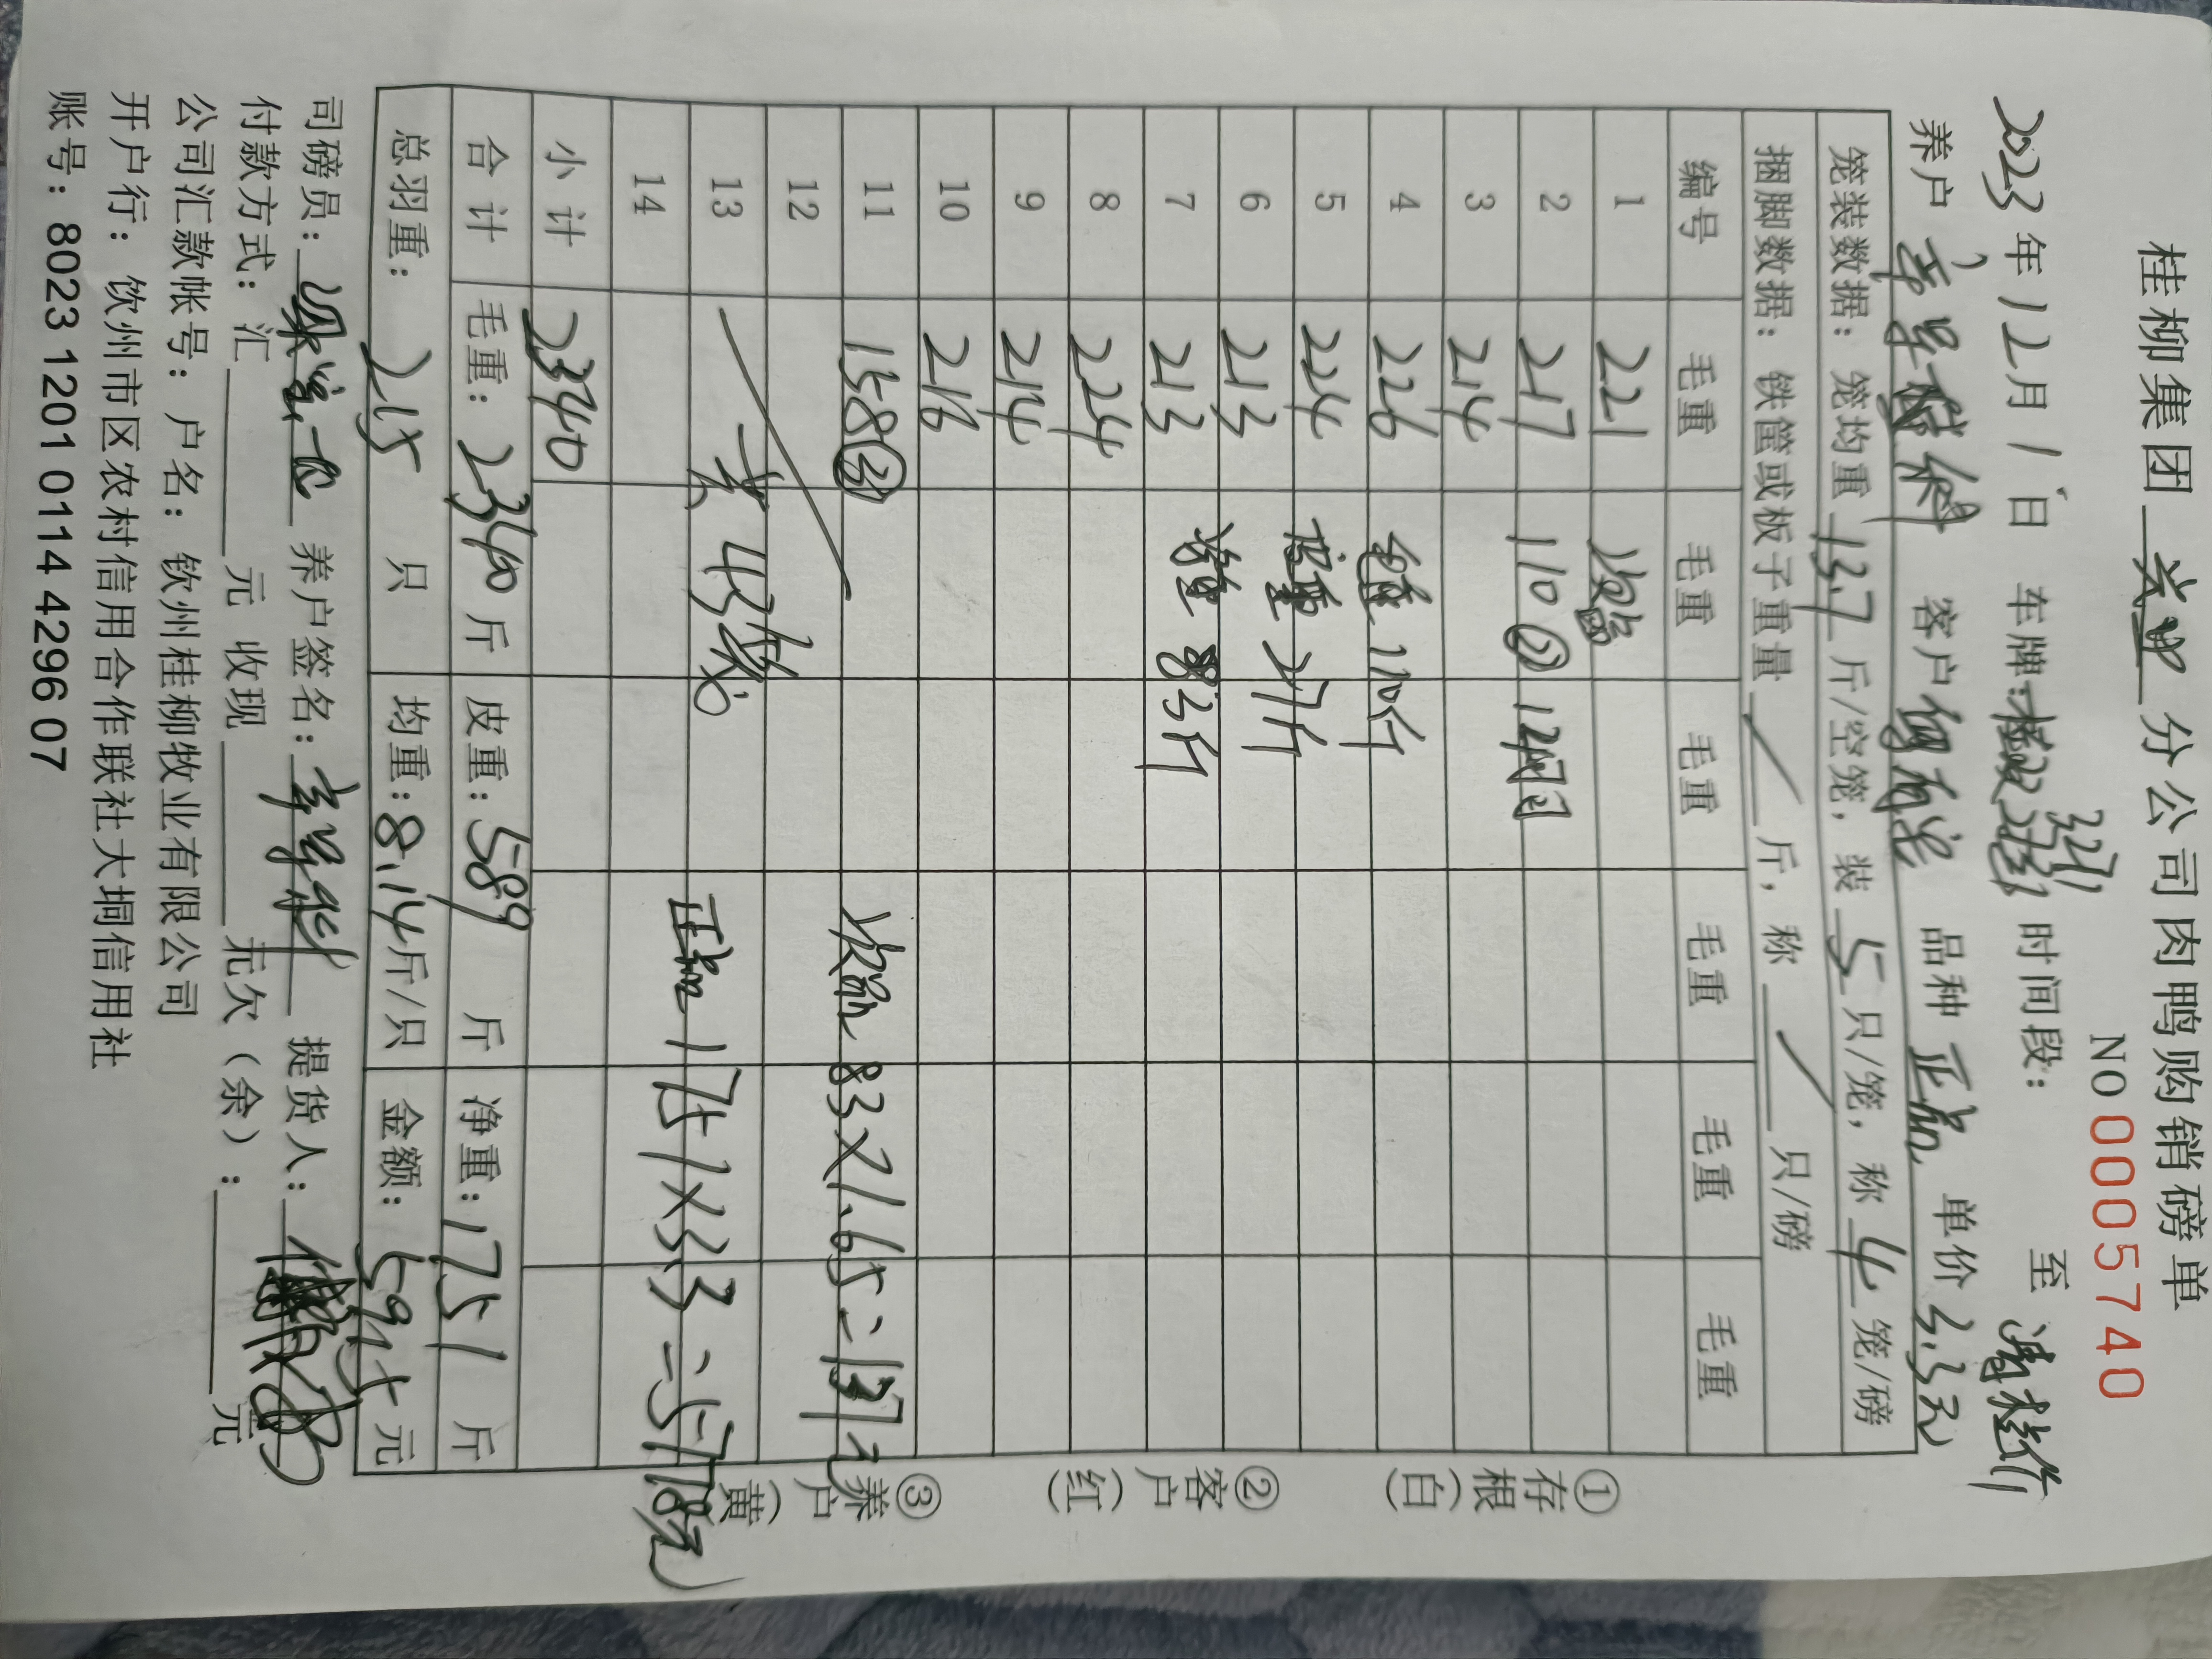 桂柳集团 兴业 分公司肉鸭购销磅单
NO 0005740
2023年12月1日 车牌: 时间段: 至
养户 客户 品种 正品 单价 3.3元
笼装数据：笼均重 13.7 斤/空笼，装 5 只/笼，称 4 笼/磅
捆脚数据：铁筐或板子重量 / 斤，称 / 只/磅
编号 毛重 毛重 毛重 毛重 毛重 毛重
1 221 次品
2 217 110 ② 12只
3 214
4 226 毛重 110斤
5 224 皮重 27斤
6 213
7 213 净重 83斤
8 224
9 214
10 216
11 158③ 次品 83×1.65=137元
12
13 共43笼 正品 1751×3.3=5778元
14
小计 2340
合计 毛重：2340 斤 皮重：589 斤 净重：1751 斤
总羽重：215 只 均重：8.14 斤/只 金额：5915 元
司磅员： 养户签名： 提货人：
付款方式：汇 元 收现 元欠（余）： 元
公司汇款帐号：户名：钦州桂柳牧业有限公司
开户行：钦州市区农村信用合作联社大垌信用社
账号：8023 1201 0114 4296 07
①存根（白）
②客户（红）
③养户（黄）